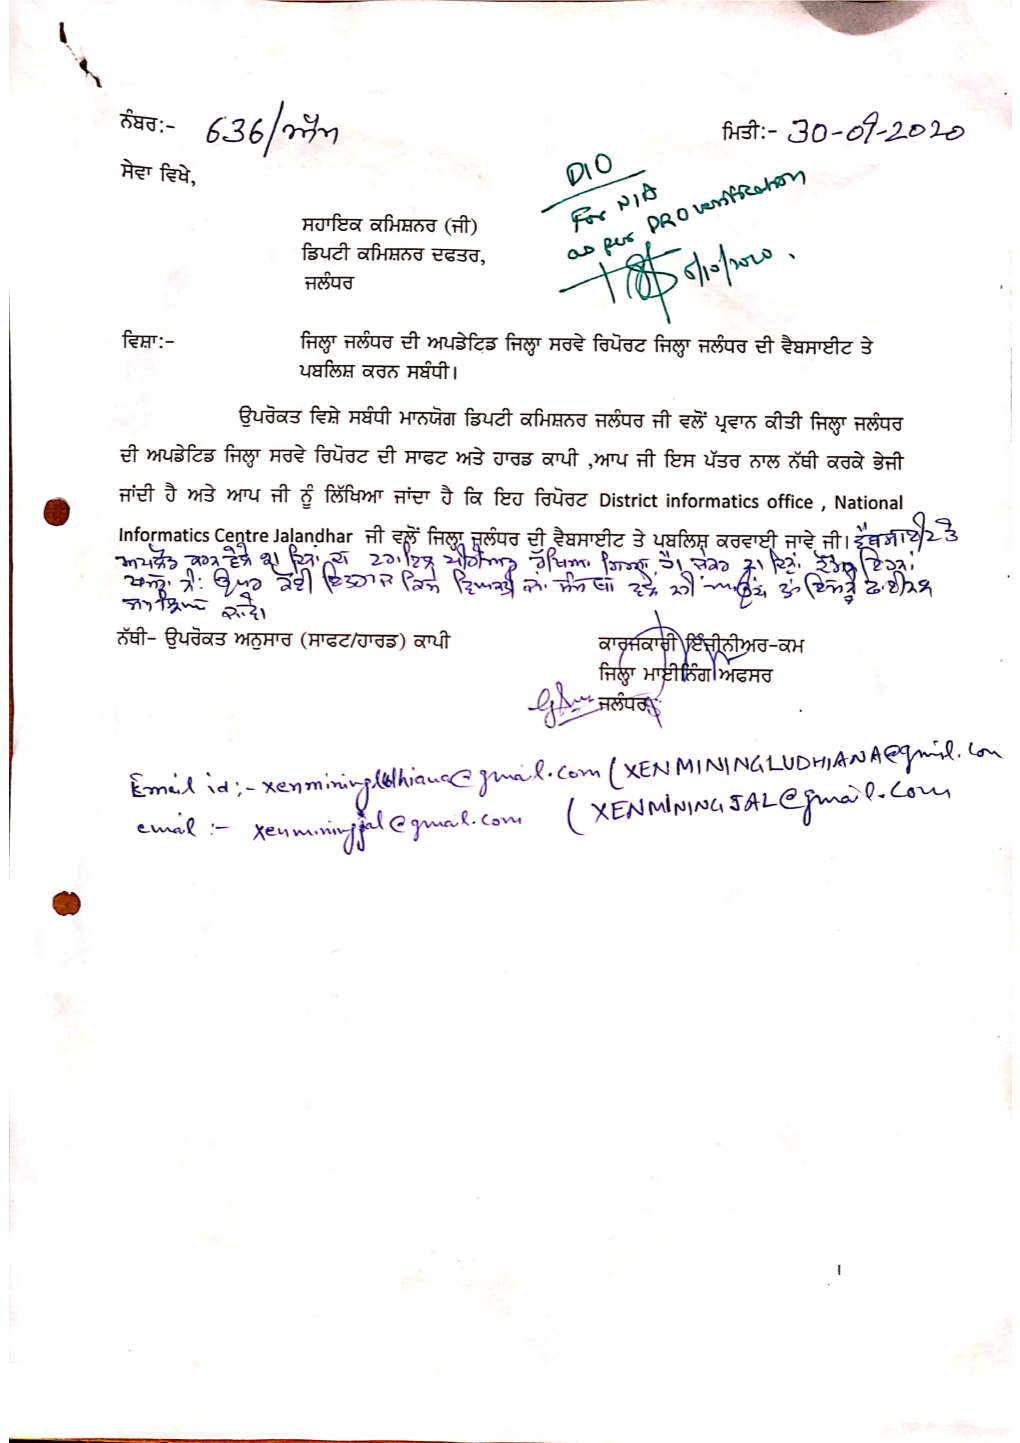 ਨੰਬਰ:- 636/
ਮਿਤੀ:- 30-09-2020
ਸੇਵਾ ਵਿਖੇ,
DIO
For NIA
as per PRO verification
6/10/2020 .
ਸਹਾਇਕ ਕਮਿਸ਼ਨਰ (ਜੀ)
ਡਿਪਟੀ ਕਮਿਸ਼ਨਰ ਦਫਤਰ,
ਜਲੰਧਰ
ਵਿਸ਼ਾ:- ਜਿਲ੍ਹਾ ਜਲੰਧਰ ਦੀ ਅਪਡੇਟਿਡ ਜਿਲ੍ਹਾ ਸਰਵੇ ਰਿਪੋਰਟ ਜਿਲ੍ਹਾ ਜਲੰਧਰ ਦੀ ਵੈਬਸਾਈਟ ਤੇ
ਪਬਲਿਸ਼ ਕਰਨ ਸਬੰਧੀ।
ਉਪਰੋਕਤ ਵਿਸ਼ੇ ਸਬੰਧੀ ਮਾਨਯੋਗ ਡਿਪਟੀ ਕਮਿਸ਼ਨਰ ਜਲੰਧਰ ਜੀ ਵਲੋਂ ਪ੍ਰਵਾਨ ਕੀਤੀ ਜਿਲ੍ਹਾ ਜਲੰਧਰ
ਦੀ ਅਪਡੇਟਿਡ ਜਿਲ੍ਹਾ ਸਰਵੇ ਰਿਪੋਰਟ ਦੀ ਸਾਫਟ ਅਤੇ ਹਾਰਡ ਕਾਪੀ ,ਆਪ ਜੀ ਇਸ ਪੱਤਰ ਨਾਲ ਨੱਥੀ ਕਰਕੇ ਭੇਜੀ
ਜਾਂਦੀ ਹੈ ਅਤੇ ਆਪ ਜੀ ਨੂੰ ਲਿੱਖਿਆ ਜਾਂਦਾ ਹੈ ਕਿ ਇਹ ਰਿਪੋਰਟ District informatics office , National
Informatics Centre Jalandhar ਜੀ ਵਲੋਂ ਜਿਲ੍ਹਾ ਜਲੰਧਰ ਦੀ ਵੈਬਸਾਈਟ ਤੇ ਪਬਲਿਸ਼ ਕਰਵਾਈ ਜਾਵੇ ਜੀ। ਵੈਬਸਾਈਟ ਤੇ
ਅਪਲੋਡ ਕਰਨ ਵੇਲੇ 21 ਦਿਨਾਂ ਦਾ ਪੀਰੀਅਡ ਰੱਖਿਆ ਗਿਆ ਹੈ। ਜੇਕਰ 21 ਦਿਨਾਂ
ਕੋਈ ਇਤਰਾਜ ਕਿਸੇ ਵਿਅਕਤੀ ਜਾਂ ਸੰਸਥਾ ਵਲੋਂ ਨਹੀਂ ਤਾਂ ਇਸਨੂੰ ਫਾਈਨਲ
ਸਮਝਿਆ ਜਾਵੇ।
ਨੱਥੀ- ਉਪਰੋਕਤ ਅਨੁਸਾਰ (ਸਾਫਟ/ਹਾਰਡ) ਕਾਪੀ
ਕਾਰਜਕਾਰੀ ਇੰਜੀਨੀਅਰ-ਕਮ
ਜਿਲ੍ਹਾ ਮਾਈਨਿੰਗ ਅਫਸਰ
ਜਲੰਧਰ
Email id:- xenminingludhiana@gmail.com (XENMININGLUDHIANA@gmail.com
email :- xenminingjal@gmail.com (XENMININGJAL@gmail.com